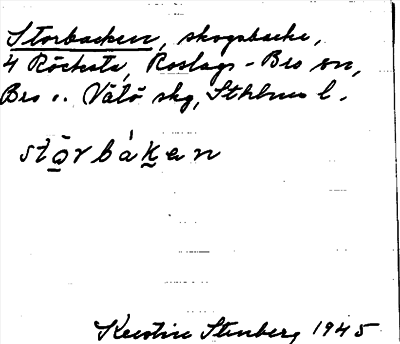 Storbacken, skogsbacke,
4 Röcksta, Roslags-Bro sn,
Bro o. Vätö skg, Sthlms l.
stårbàk̲en
Kerstin Stenberg 1945